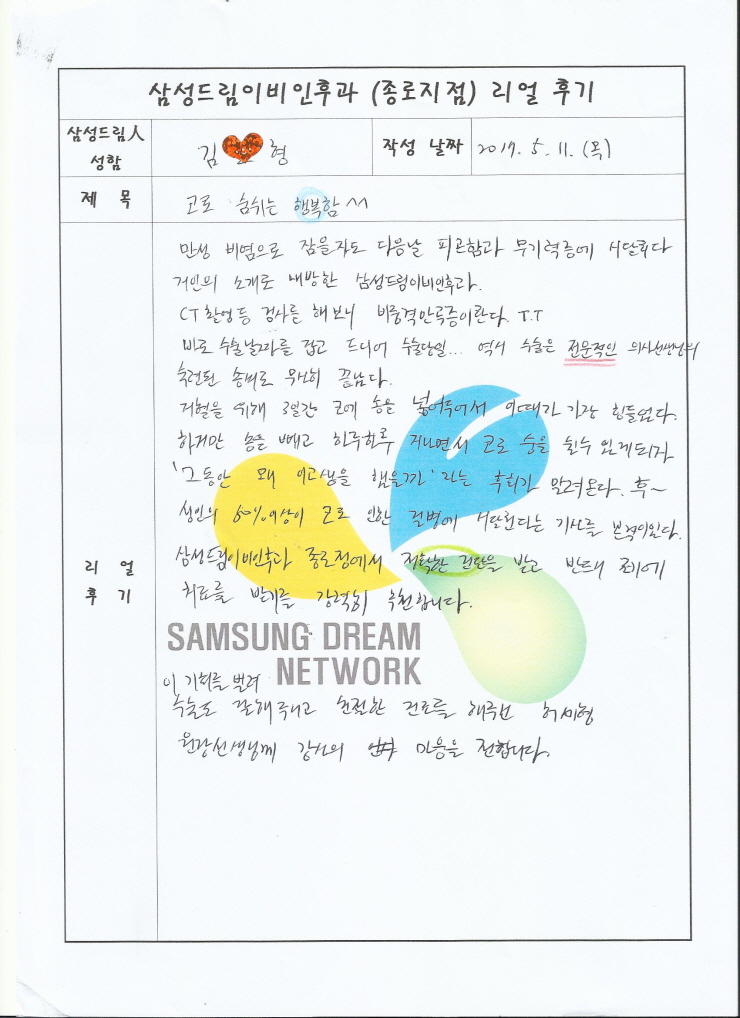 삼성드림이비인후과 (종로지점) 리얼 후기
삼성드림人
성함
김 형
작성 날짜
2017. 5. 11. (목)
제 목
코로 숨쉬는 행복함 ^^
만성 비염으로 잠을자도 다음날 피곤함과 무기력증에 시달리다
지인의 소개로 내방한 삼성드림이비인후과.
CT촬영등 검사를 해보니 비중격만곡증이란다. T.T
바로 수술날짜를 잡고 드디어 수술당일... 역시 수술은 전문적인 의사선생님의
숙련된 솜씨로 무사히 끝났다.
지혈을 위해 3일간 코에 솜을 넣어두어서 이때가 가장 힘들었다.
하지만 솜을 빼고 하루하루 지나면서 코로 숨을 쉴수 있게되자
'그동안 왜 이고생을 했을까' 라는 후회가 밀려온다. 후~
성인의 60%이상이 코로 인한 질병에 시달린다는 기사를 본적이있다.
삼성드림이비인후과 종로점에서 정확한 진단을 받고 반드시 제때에
치료를 받기를 강력히 추천합니다.
리 얼
후 기
SAMSUNG DREAM
NETWORK
이 기회를 빌려
수술도 잘해주시고 친절한 진료를 해주신 허세형
원장선생님께 감사의 마음을 전합니다.